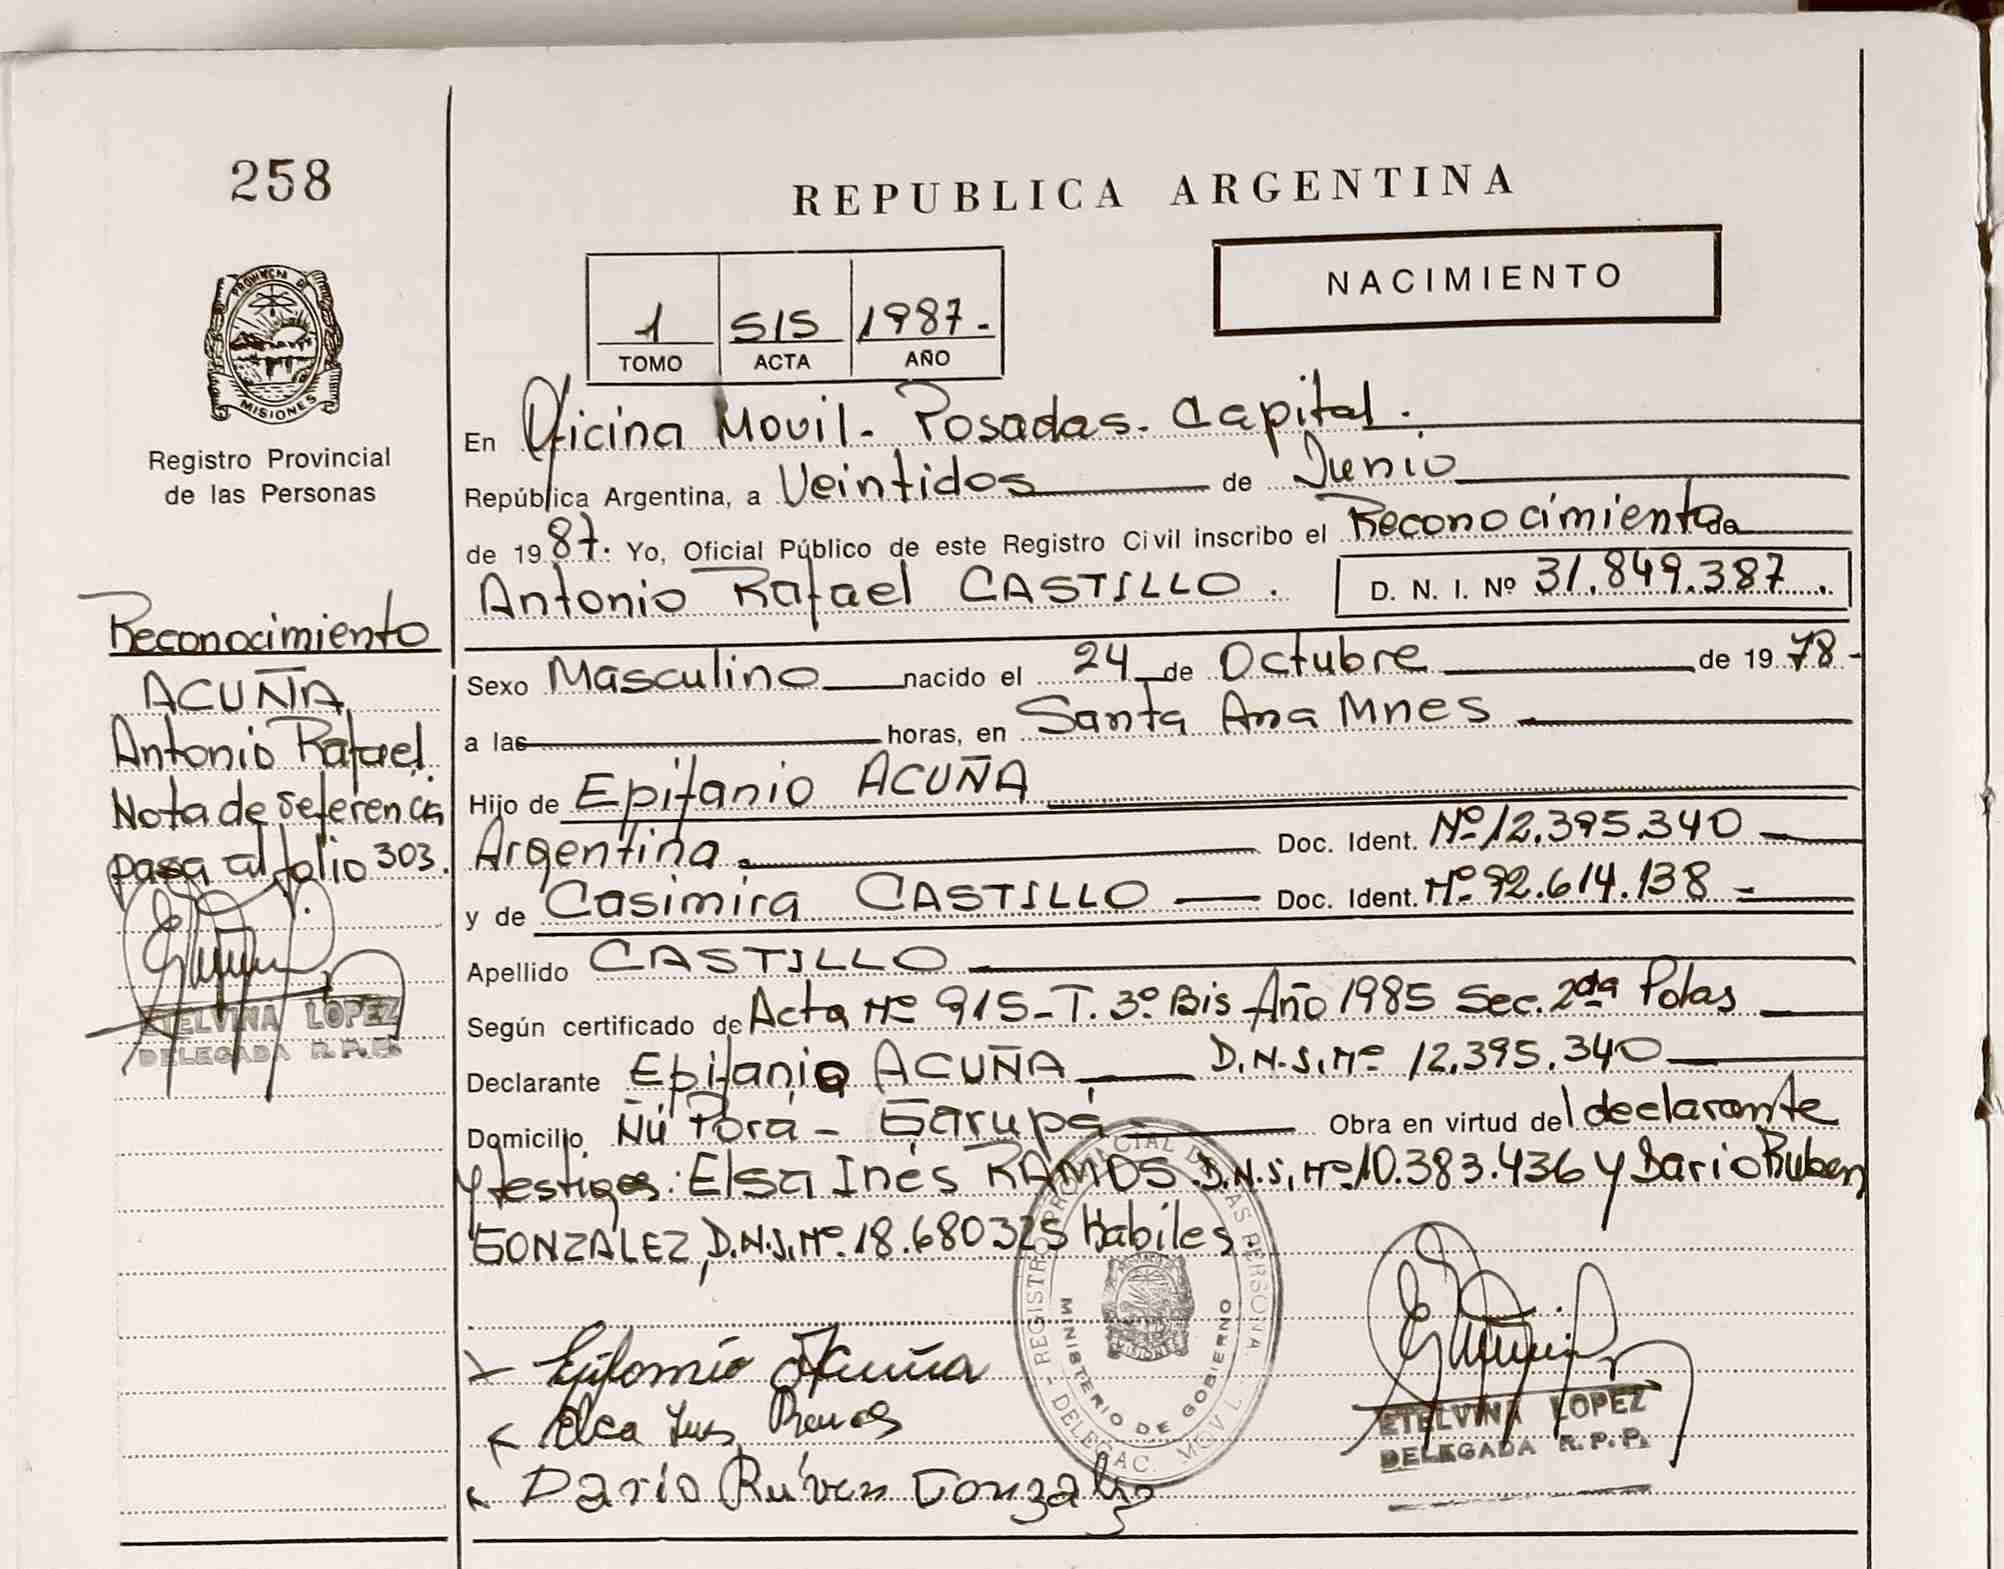 258
REPUBLICA ARGENTINA
NACIMIENTO
1 515 1987.-
TOMO ACTA AÑO
PROVINCIA DE
MISIONES
Registro Provincial
de las Personas
Reconocimiento
ACUÑA
Antonio Rafael.
Nota de referencia
pasa al folio 303.
ETELVINA LOPEZ
DELEGADA R.P.P.
En Oficina Movil. Posadas. Capital.
República Argentina, a Veintidos de Junio
de 1987. Yo, Oficial Público de este Registro Civil inscribo el Reconocimiento de
Antonio Rafael CASTILLO. D. N. I. Nº 31.849.387.
Sexo Masculino nacido el 24 de Octubre de 1978-
a las horas, en Santa Ana Mnes
Hijo de Epifanio ACUÑA
Argentina Doc. Ident. Nº 12.395.340
y de Casimira CASTILLO Doc. Ident. Nº 92.614.138
Apellido CASTILLO
Según certificado de Acta Nº 915-T. 3º Bis Año 1985 Sec. 2da Pdas
Declarante Epifanio ACUÑA D.N.I. Nº 12.395.340
Domicilio Ñú Porá - Garupá Obra en virtud del declarante
y testigos: Elsa Inés RAMOS D.N.I. Nº 10.383.436 y Dario Ruben
GONZALEZ, D.N.I. Nº 18.680325 Habiles.
Epifanio Acuña
Dario Rúben Gonzalez
REGISTRO PROVINCIAL DE LAS PERSONAS
MINISTERIO DE GOBIERNO
DELEGAC. MOVIL
ETELVINA LOPEZ
DELEGADA R.P.P.